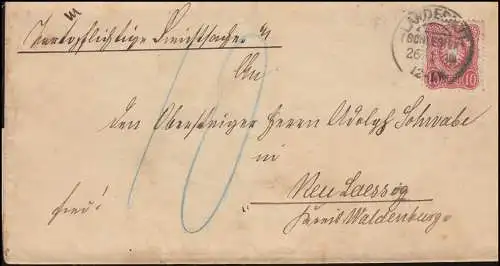 Portopflichtige Dienstsache
An
den Obersteiger Herrn Adolph Schwabe
in
Neu Laessig
frei!
Kreis Waldenburg
10
LANDESHUT
26
12-1N.
10